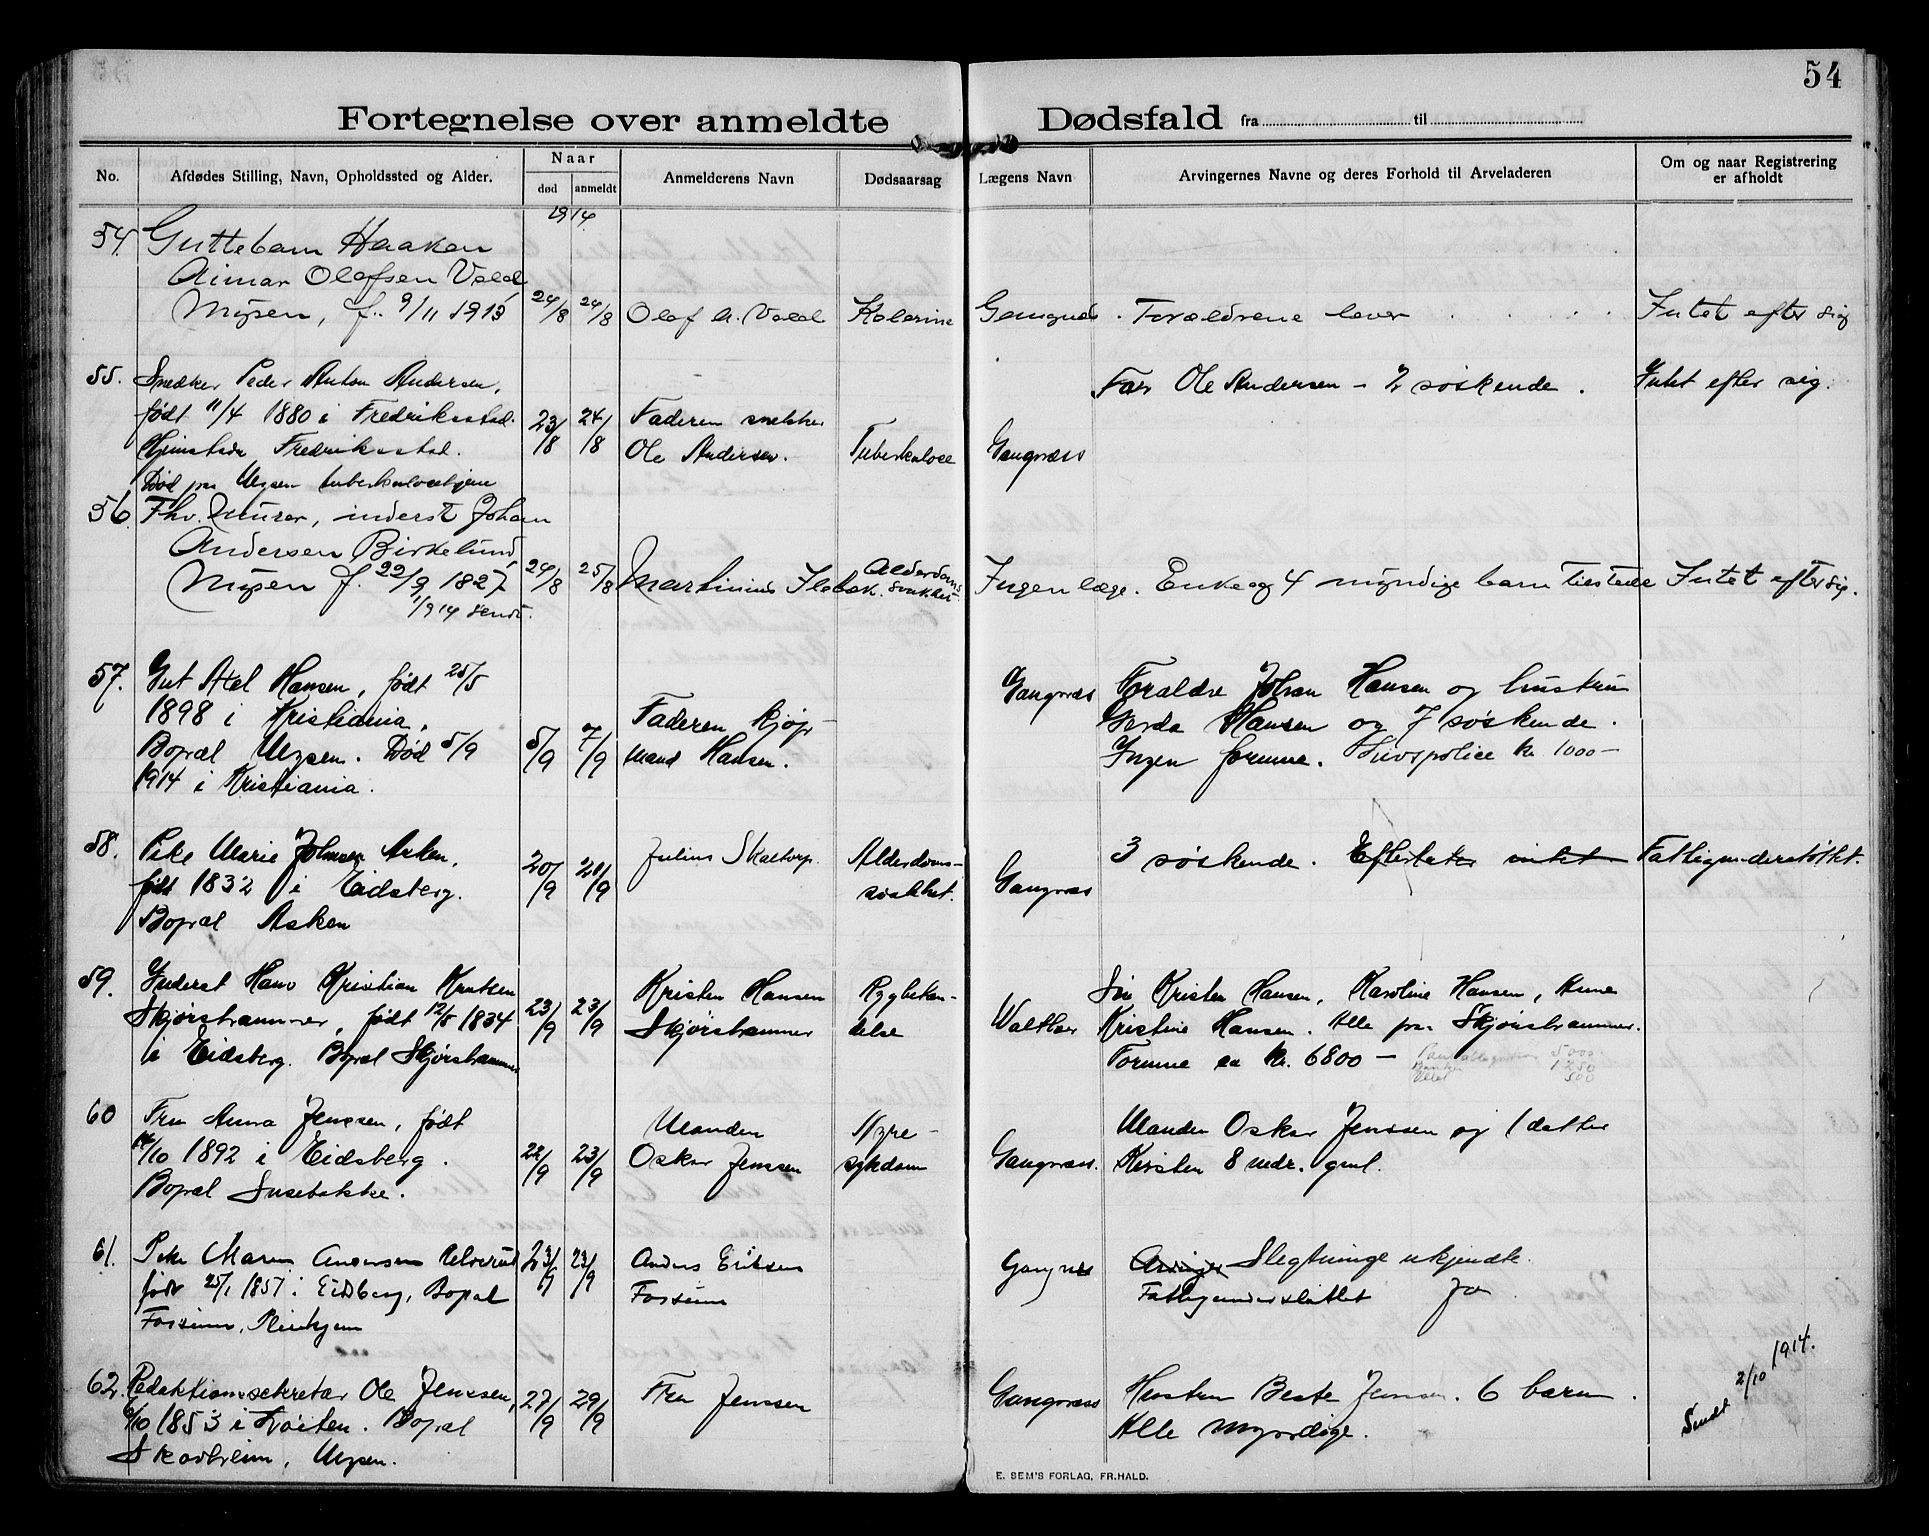 54
Fortegnelse over anmeldte Dødsfald fra til
No.
Afdødes Stilling, Navn, Opholdssted og Alder.
Naar
død
anmeldt
Anmelderens Navn
Dødsaarsag
Lægens Navn
Arvingernes Navne og deres Forhold til Arveladeren
Om og naar Registrering
er afholdt
1914
54. Guttebarn Haakon
Olafsen
Mysen, f. 9/11 1913 24/8 24/8 Olaf A. Kolerine Forældrene lever Intet efter sig
55. Snedker Peder Anton Andersen, Far Ole Andersen - 2 søskende. Intet efter sig.
født 11/4 1880 i Fredriksstad. 23/8 24/8 Faderen snekker
Fredriksstad. Ole Andersen. Tuberkulose Gangnæss
Død paa Mysen tuberkulosehjem
56. Fhv. murer, inderst Johan
Andersen Birkelund,
Mysen f. 22/9 1827 24/8 25/8 Martinius Alderdoms Ingen læge. Enke og 4 myndige barn tilstede Intet efter sig.
1/9 14 sendt.
57. Gut Axel Hansen, født 25/5 Gangnæss Forældre Johan Hansen og hustru
1898 i Kristiania. Faderen kjøp- Gerda Hansen og 7 søskende.
Bopæl Mysen. Død 5/9 5/9 7/9 mand Hansen. Ingen formue. Livspolice kr. 1000 -
1914 i Kristiania.
58. Pike Marie Johnsen Asken, Julius Skaltorp. Alderdoms- 3 søskende. Efterlater intet Fattigunderstøttet.
født 1832 i Eidsberg. 20/9 21/9 Gangnæss
Bopæl Asken
59. Inderst Hans Kristian Knutsen Kristen Hansen Rygbetæn- Kristen Hansen, Karoline Hansen, Anne
Skjørshammer, født 12/5 1834 23/9 23/9 Skjørshammer delse Walther Kristine Hansen. Alle paa Skjørshammer.
i Eidsberg. Bopæl Skjørshammer Formue ca kr. 6800 -
5000
1250
500
60 Fru Anna Jenssen, født Manden Nyre- Manden Oskar Jenssen og 1 datter
14/10 1892 i Eidsberg. 22/9 23/9 Oskar Jenssen sykdom Gangnæss. Kirsten 8 mdr. gml.
Bopæl Susebakke.
61. Pike Maren Andersen 23/9 23/9 Anders Eriksen Gangnes Arvinger Slegtninge ukjendte.
født 25/1 1857 i Eidsberg, Bopæl Fossum Fattigunderstøttet Ja
Fossum, Pleiehjem
62. Redaktionssekretær Ole Jenssen, 27/9 29/9 Fru Jenssen Gangnæss Hustru Jensen. 6 barn.
6/10 1853 i Løiten. Bopæl Alle myndige.
Skovheim, Mysen.
Sendt 2/10 1914.
E. SEM'S FORLAG, FR.HALD.